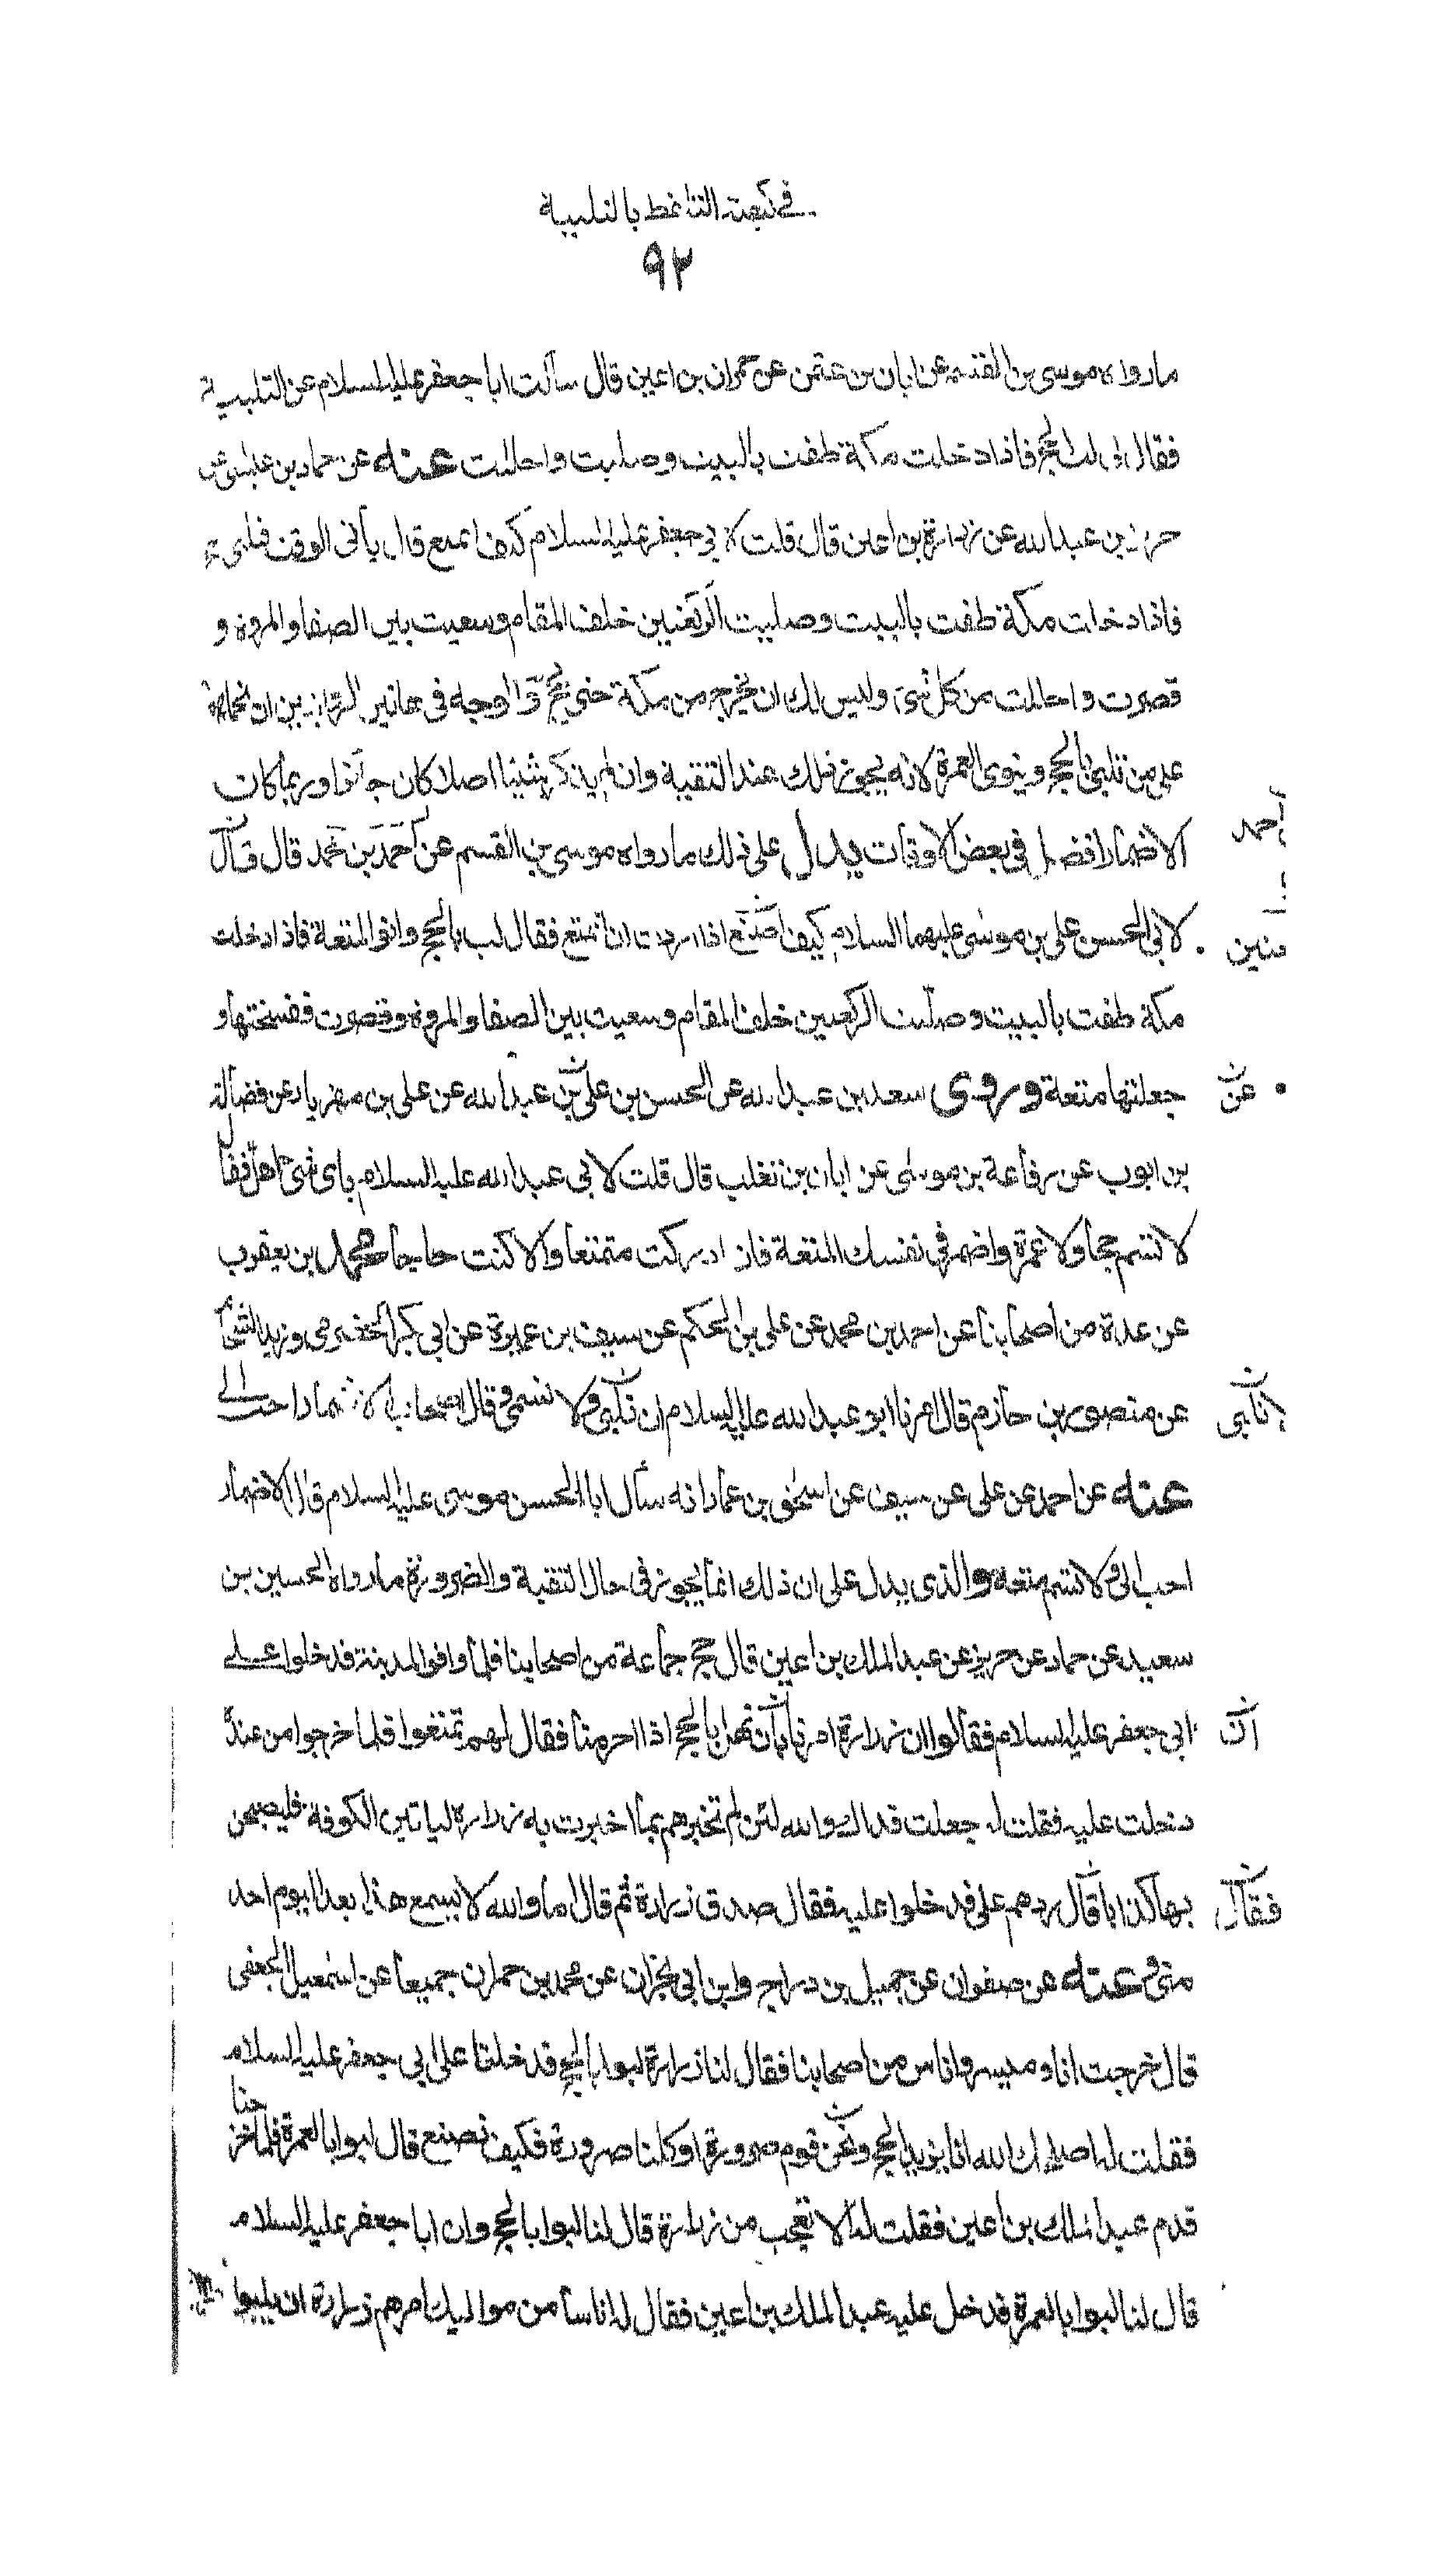 في كيفية التلفظ بالتلبية
٩٢
مارواه موسى بن القسم عن ابان بن عثمن عن حمران بن اعين قال سألت ابا جعفر عليه السلام عن التلبية
فقال لي لب بالحج فاذا دخلت مكة طفت بالبيت وصليت واحللت عنه عن حماد بن عيسى عن
حريز بن عبد الله عن زرارة بن اعين قال قلت لابي جعفر عليه السلام كيف اتمتع قال يأتي الوقت فلبى بحج
فاذا دخلت مكة طفت بالبيت وصليت الركعتين خلف المقام وسعيت بين الصفا والمروة و
قصرت واحللت من كل شئ وليس لك ان تخرج من مكة حتى تحج والوجه في هاتين الروايتين ان نحملهما
على من تلبى بالحج وينوى العمرة لانه يجوز ذلك عند التقية وان لم يذكر شيئا اصلا كان جائزا وربما كان
الاضمار افضل في بعض الاوقات يدل على ذلك مارواه موسى بن القسم عن احمد بن محمد قال قال
احمد
لابي الحسن علي بن موسى عليهما السلام كيف اصنع اذا اردت ان اتمتع فقال لب بالحج وانو المتعة فاذا دخلت
مكة طفت بالبيت وصليت الركعتين خلف المقام وسعيت بين الصفا والمروة وقصرت ففسختها و
جعلتها متعة وروى سعد بن عبد الله عن الحسن بن علي بن عبد الله عن علي بن مهزيار عن فضالة
عن
بن ايوب عن رفاعة بن موسى عن ابان بن تغلب قال قلت لابي عبد الله عليه السلام باى شئ اهل فقال
لا تسم حجا ولا عمرة واضمر في نفسك المتعة فان ادركت متمتعا والا كنت حاجا محمد بن يعقوب
عن عدة من اصحابنا عن احمد بن محمد عن علي بن الحكم عن سيف بن عميرة عن ابي بكر الحضرمي وزيد الشحام
عن منصور بن حازم قال امرنا ابو عبد الله عليه السلام ان نلبي ولا نسمى وقال اصحاب الاضمار احب الي
عنه عن احمد عن علي عن سيف عن اسحق بن عمار انه سأل ابا الحسن موسى عليه السلام قال الاضمار
احب الي ولا تسم متعة والذي يدل على ان ذلك انما يجوز في حال التقية والضرورة مارواه الحسين بن
سعيد عن حماد عن حريز عن عبد الملك بن اعين قال حج جماعة من اصحابنا فلما وافوا المدينة فدخلوا على
ابي جعفر عليه السلام فقالوا ان زرارة امرنا بان نهل بالحج اذا احرمنا فقال لهم تمتعوا فلما خرجوا من عنده
ان
دخلت عليه فقلت له جعلت فداك والله لئن لم تخبرهم بما اخبرت به زرارة لياتين الكوفة فليصبحن
بها كذابا قال ردهم علي فدخلوا عليه فقال صدق زرارة ثم قال اما والله لا يسمع هذا بعد اليوم احد
فقال
مني عنه عن صفوان عن جميل بن دراج وابن ابي نجران عن محمد بن حمران جميعا عن اسمعيل الجعفي
قال خرجت انا وميسر واناس من اصحابنا فقال لنا زرارة لبوا بالحج فدخلنا على ابي جعفر عليه السلام
فقلت له اصلحك الله انا نريد الحج ونحن قوم صرورة او كلنا صرورة فكيف نصنع قال لبوا بالعمرة فلما خرجنا
قدم عبد الملك بن اعين فقلت له الا تعجب من زرارة قال لنا لبوا بالحج وان ابا جعفر عليه السلام
قال لنا لبوا بالعمرة فدخل عليه عبد الملك بن اعين فقال له ان اناسا من مواليك امرهم زرارة ان يلبوا